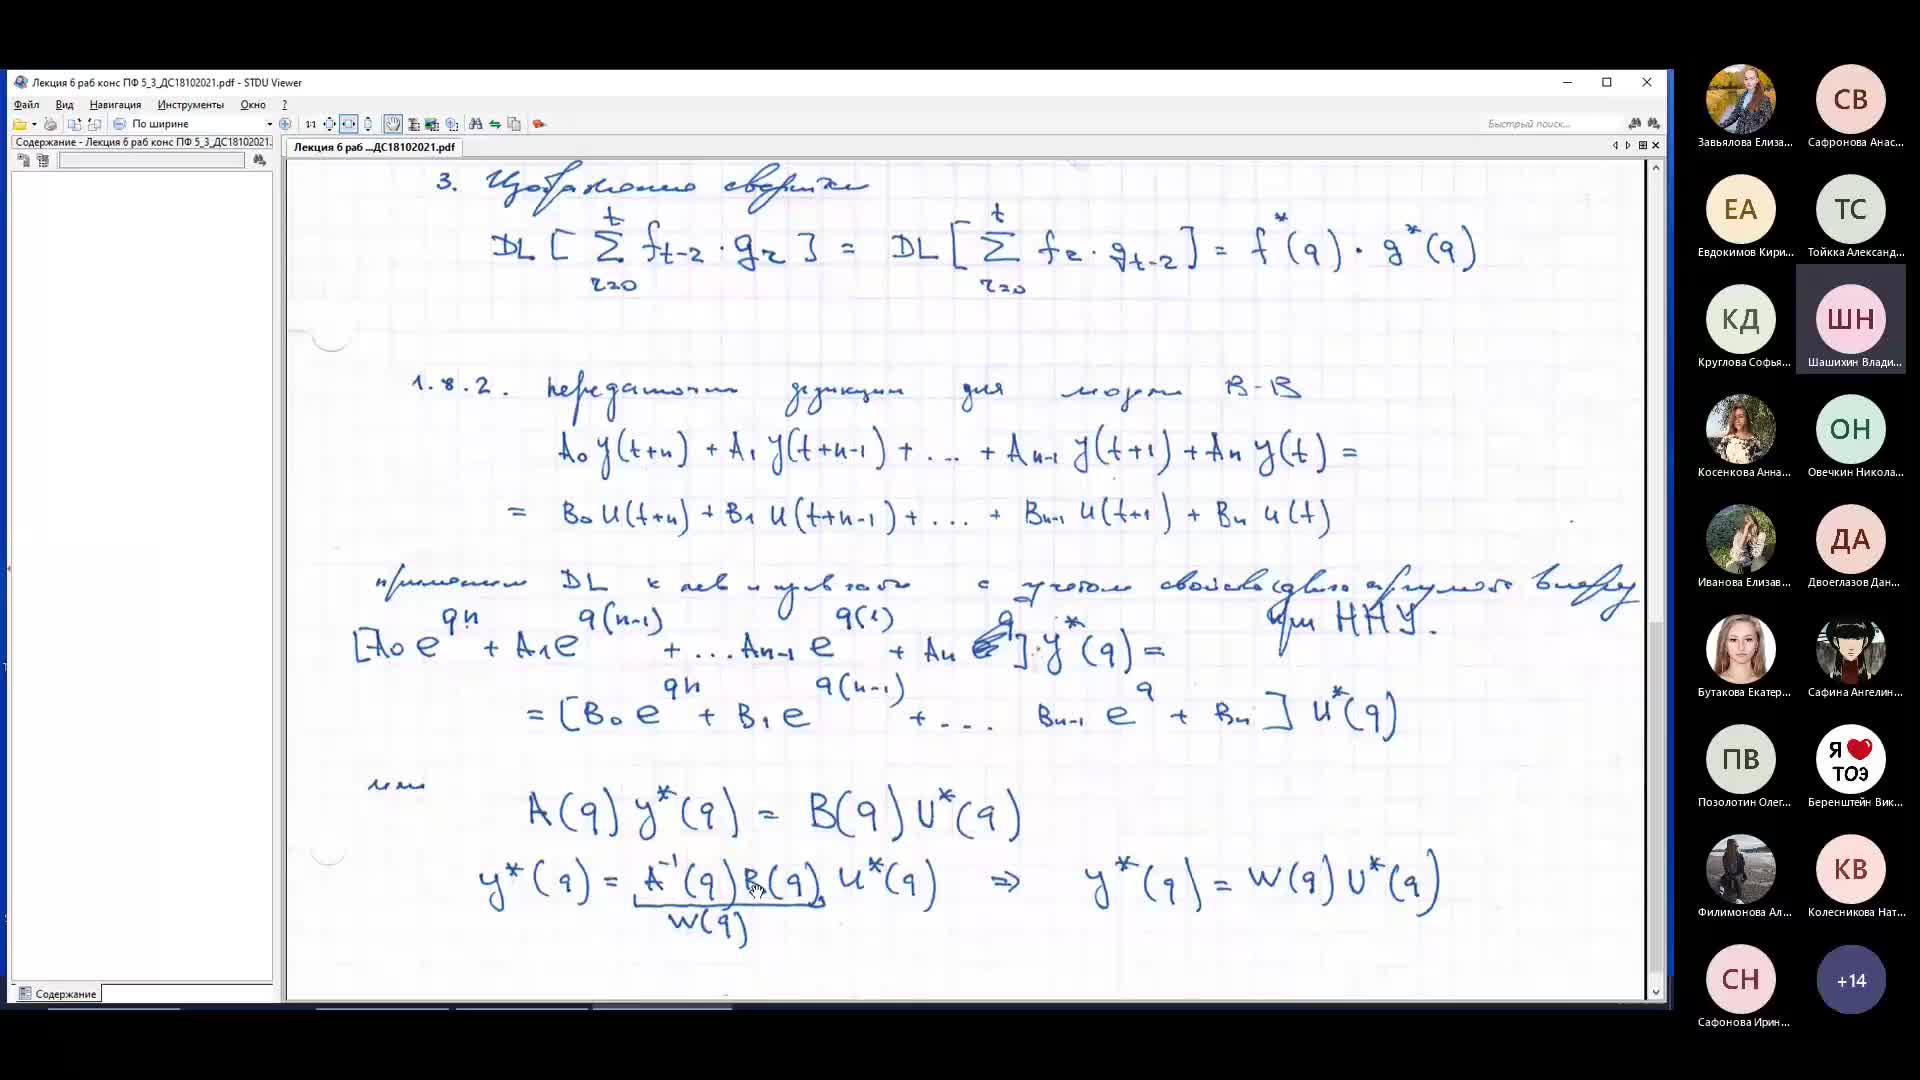 Лекция 6 раб конс ПФ 5_3_ДС18102021.pdf - STDU Viewer
Файл Вид Навигация Инструменты Окно ?
По ширине
Быстрый поиск...
Содержание - Лекция 6 раб конс ПФ 5_3_ДС18102021.
Лекция 6 раб ...ДС18102021.pdf
3. Изображение свертки
DL [ Σ_{τ=0}^{t} f_{t-τ} · g_τ ] = DL [ Σ_{τ=0}^{t} f_τ · g_{t-τ} ] = f*(q) · g*(q)
1.8.2. Передаточн функции для модели В-В
A₀ y(t+n) + A₁ y(t+n-1) + ... + Aₙ₋₁ y(t+1) + Aₙ y(t) =
= B₀ u(t+n) + B₁ u(t+n-1) + ... + Bₙ₋₁ u(t+1) + Bₙ u(t)
применим DL к лев и прав части с учетом свойства сдвига аргумента вперед
при ННУ.
[A₀ e^{qn} + A₁ e^{q(n-1)} + ... Aₙ₋₁ e^{q(1)} + Aₙ ] · y*(q) =
= [B₀ e^{qn} + B₁ e^{q(n-1)} + ... Bₙ₋₁ e^{q} + Bₙ ] u*(q)
или
A(q) y*(q) = B(q) U*(q)
y*(q) = A⁻¹(q) B(q) u*(q) ⇒ y*(q) = W(q) U*(q)
W(q)
Содержание
Завьялова Елиза...
СВ
Сафронова Анас...
ЕА
Евдокимов Кири...
ТС
Тойкка Александ...
КД
Круглова Софья...
ШН
Шашихин Влади...
Косенкова Анна...
ОН
Овечкин Никола...
Иванова Елизав...
ДА
Двоеглазов Дан...
Бутакова Екатер...
Сафина Ангелин...
ПВ
Позолотин Олег...
Я ❤ ТОЭ
Беренштейн Вик...
Филимонова Ал...
КВ
Колесникова Нат...
СН
Сафонова Ирин...
+14